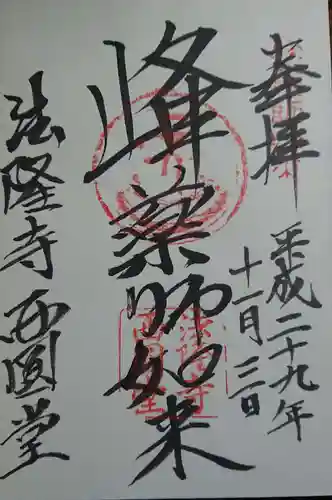 奉拝
平成二十九年
十一月三日
峰薬師如来
法隆寺
西圓堂